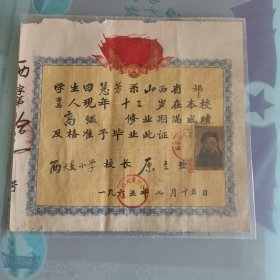 学生田慧芳系山西省祁
县人现年十三岁在本校
高级 修业期满成绩
及格准予毕业此证
西关小学校长 原立业
一九六五年七月十五日
西字第
号